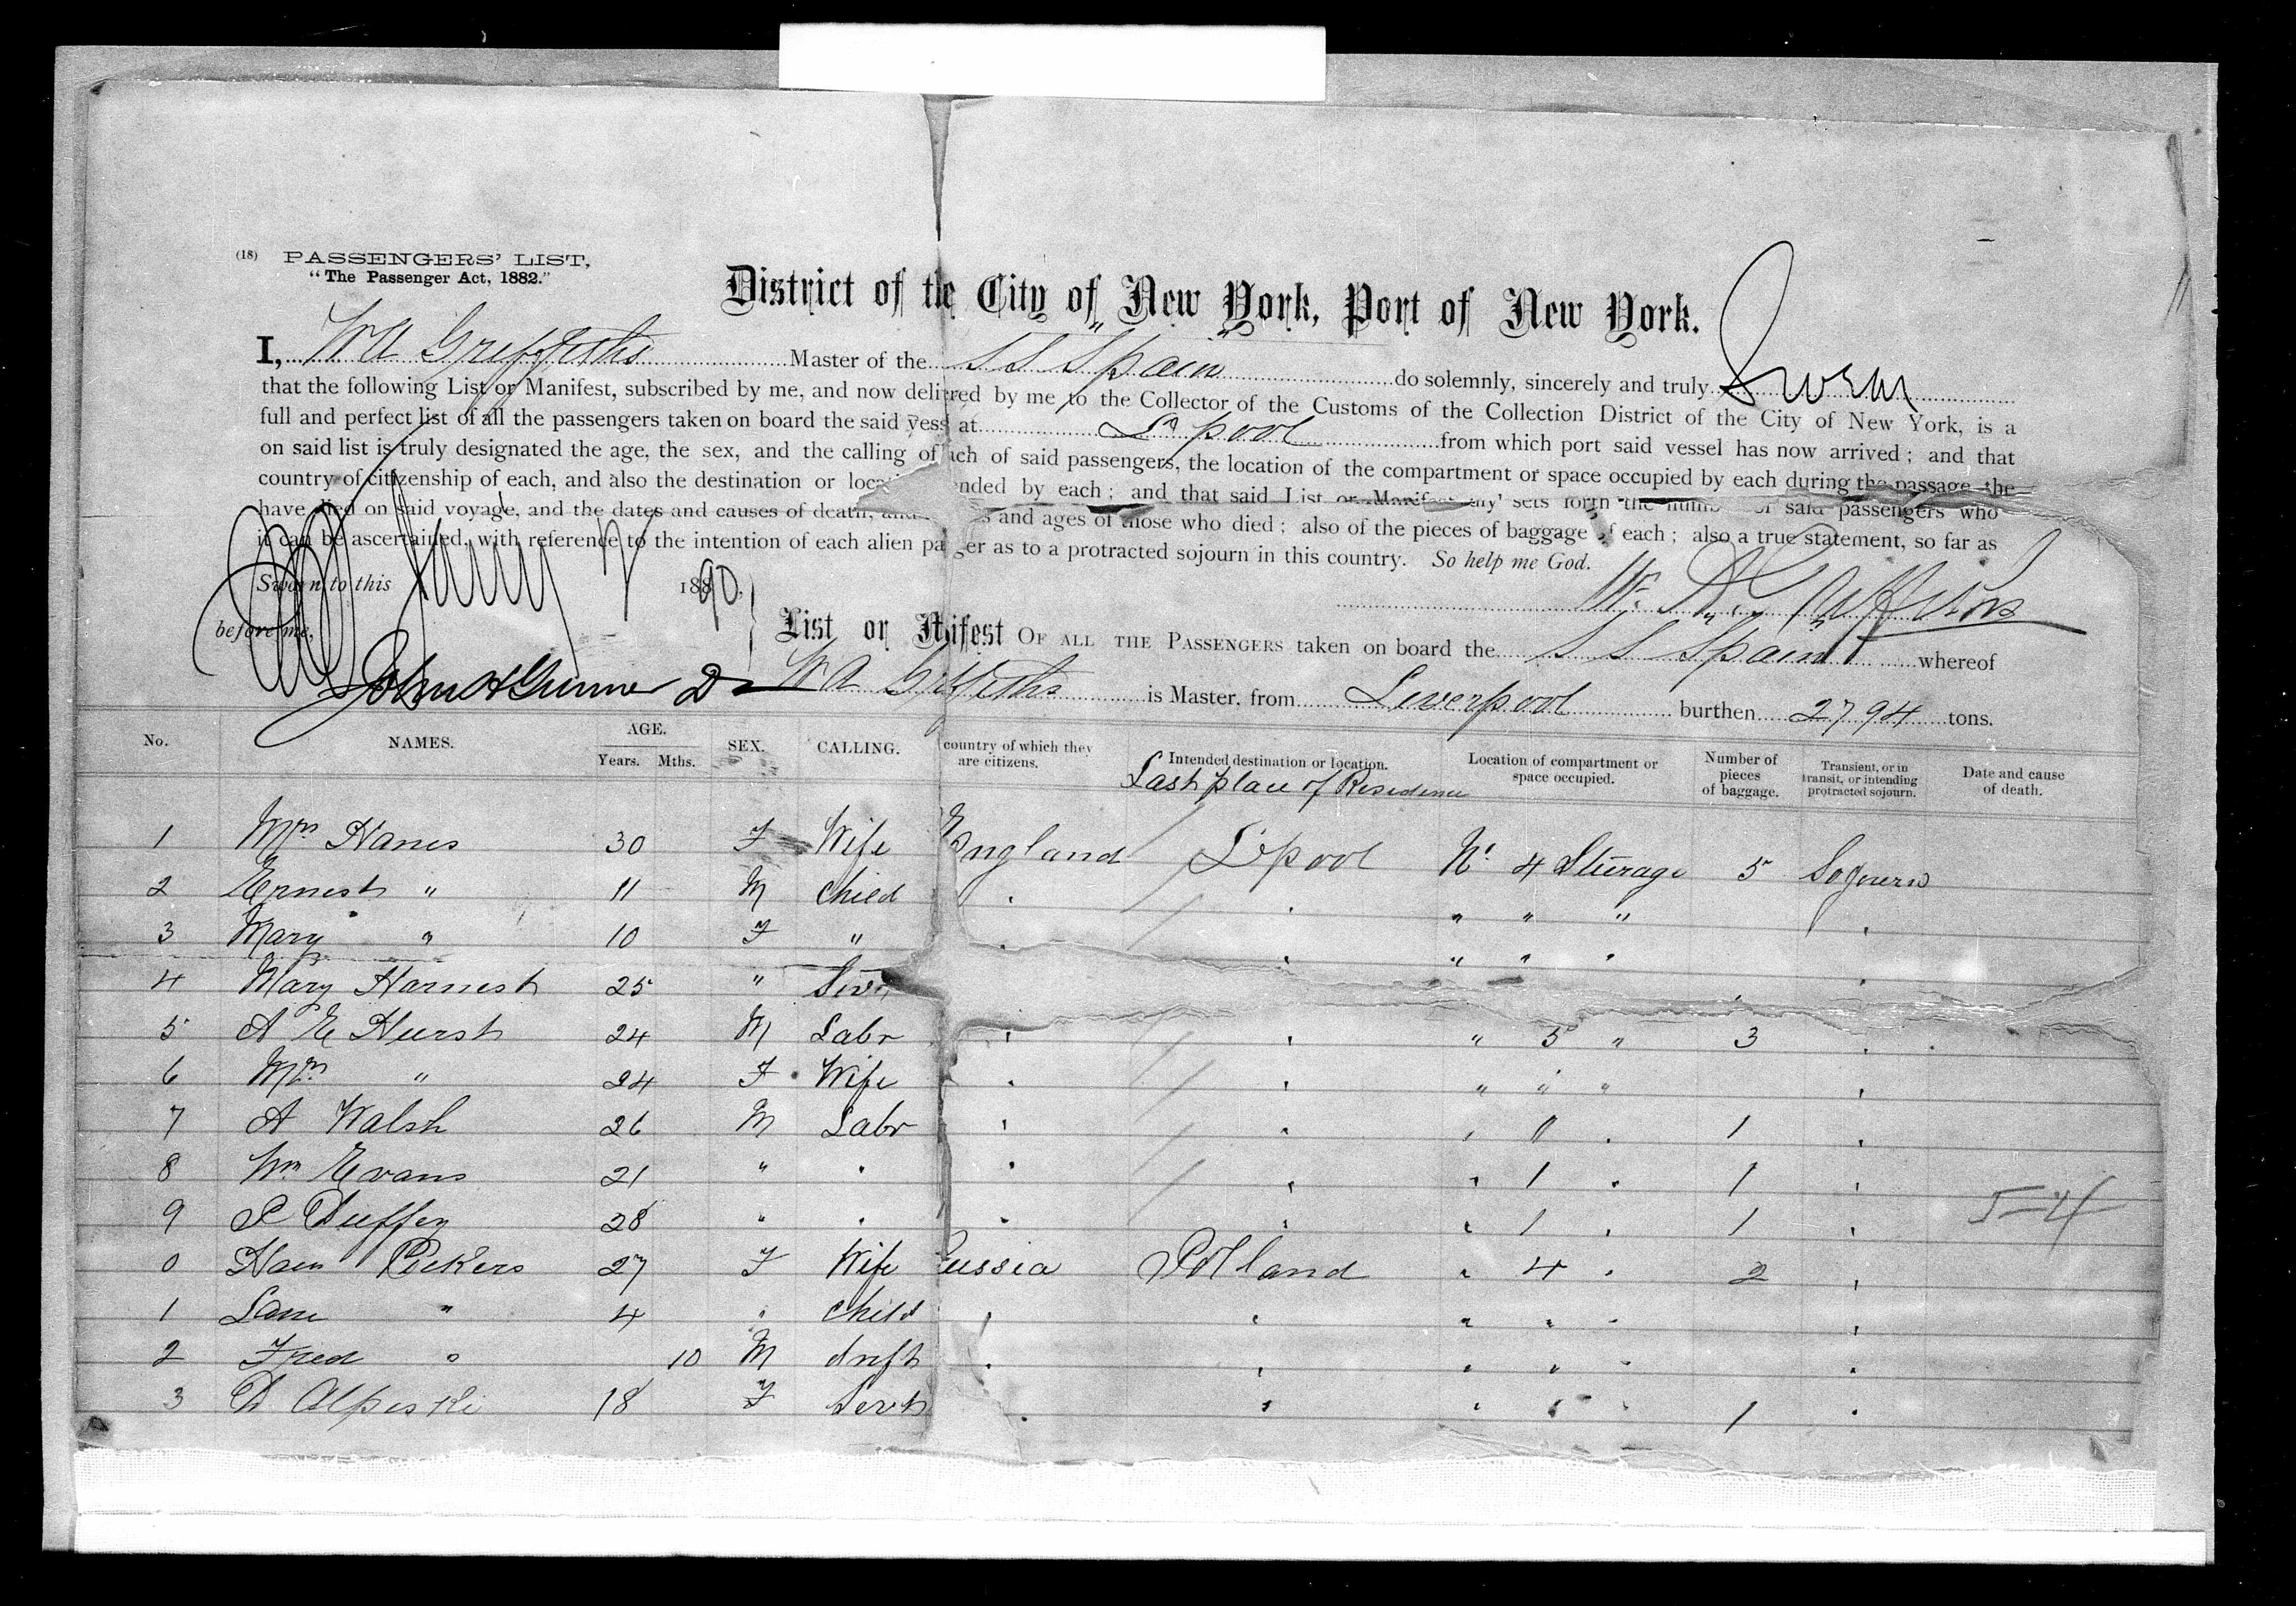 (18) PASSENGERS' LIST,
"The Passenger Act, 1882."
District of the City of New York, Port of New York.
I, W A Griffiths Master of the S S "Spain" do solemnly, sincerely and truly Swear
that the following List or Manifest, subscribed by me, and now delivered by me to the Collector of the Customs of the Collection District of the City of New York, is a
full and perfect list of all the passengers taken on board the said vess at L'pool from which port said vessel has now arrived; and that
on said list is truly designated the age, the sex, and the calling of ach of said passengers, the location of the compartment or space occupied by each during the passage, the
country of citizenship of each, and also the destination or loca nded by each; and that said List or Manifest sets forth the numb of said passengers who
have died on said voyage, and the dates and causes of death, and s and ages of those who died; also of the pieces of baggage of each; also a true statement, so far as
it can be ascertained, with reference to the intention of each alien pa ger as to a protracted sojourn in this country. So help me God.
Sworn to this 7 1890.
before me,
W. A. Griffiths
List or M ifest OF ALL THE PASSENGERS taken on board the S S "Spain" whereof
W A Griffiths is Master, from Liverpool burthen 2794 tons.
No. NAMES. AGE. Years. Mths. SEX. CALLING. country of which they are citizens. Intended destination or location. Last place of Residence Location of compartment or space occupied. Number of pieces of baggage. Transient, or in transit, or intending protracted sojourn. Date and cause of death.
1 Mrs Hanes 30 F Wife England L'pool No 4 Sturage 5 Sojourn
2 Ernest " 11 M Child " " " " " "
3 Mary " 10 F " " " " " " "
4 Mary Harnest 25 "
5 A E Hurst 24 M Labr " " " 5 " 3 "
6 Mrs " 24 F Wife " " " " " "
7 A Walsh 26 M Labr " " " " " 1 "
8 Wm Evans 21 " " " " " 1 " 1 "
9 P Duffey 28 " " " " " 1 " 1 "
0 Pickers 27 F Wife ussia Polland " 4 " 2 "
1 " 4 " Child " " " " " "
2 Fred " 10 M Inft " " " " " "
3 D Alpeski 18 F Servt " " " " " 1 "
5=4